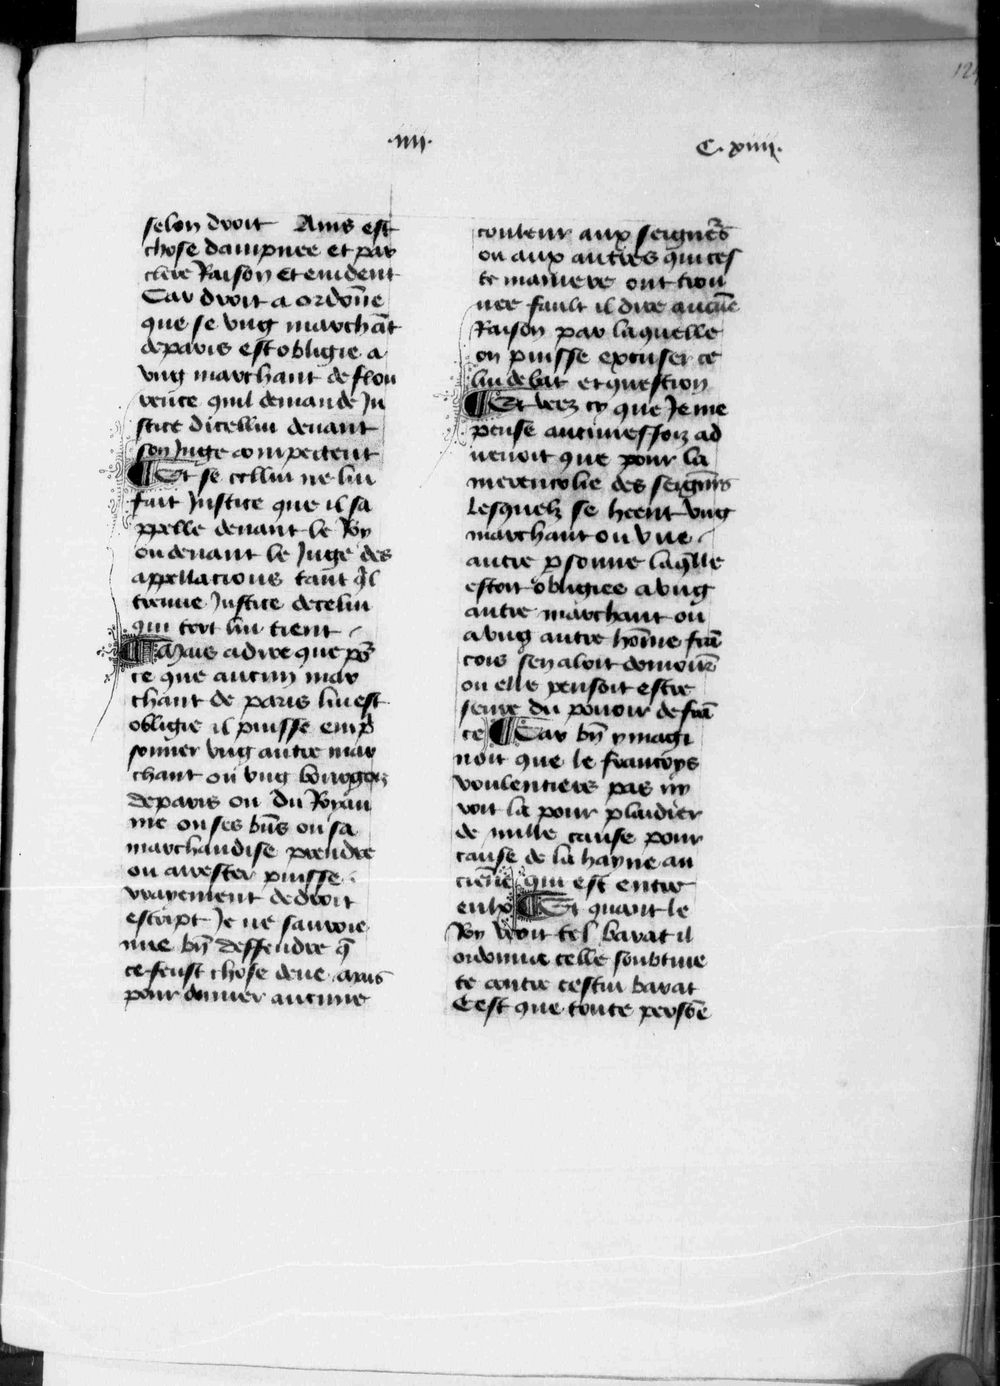 .iiii.
C. xiiii.
12
selon droit Ains est
chose dampnee et par
clere Raison Et euident
Car droit a ordōne
que se vng marchāt
de paris est obligie a
vng marchant de flou
rence quil demande Ju
stice dicellui deuant
son Juge competent
¶ Et se cellui ne lui
fait Justice que il sa
ppelle deuant le Roy
ou deuant le Juge des
appellacions tant q̄l
treuue Justice de celui
qui tort lui tient
¶ Mais a dire que po᷑
ce que aucun mar
chant de paris lui est
obligie il puisse emp̄
sonner vng autre mar
chant ou vng bourgois
de paris ou du Royau
me ou ses bn̄s ou sa
marchandise prendre
ou arrester puisse
vrayement de droit
escript Je ne sauroie
mie bn̄ deffendre q̄
ce feust chose deue Mais
pour donner aucune
couleur aux seigneᷣs
ou aux autres qui ces
te maniere ont trou
uee fault il dire aucūe
Raison par laquelle
on puisse excuser ce
lui debat et question
¶ Et veez cy que Je me
pense aucunesfoiz ad
uenoit que pour la
merencolie des seign̄rs
lesquelz se heent vng
marchant ou vne
autre ꝑsonne laq̄lle
estoit obligiee a vng
autre marchant ou
a vng autre hōme frā
cois sen aloit demourer
ou elle pensoit estre
seure du pouoir de frā
ce ¶ Car bn̄ ymagi
noit que le francoys
voulentiers pas ny
roit la pour plaidier
de nulle cause pour
cause de la hayne an
ciēne qui est entre
eulx ¶ Et quant le
Roy veoit tel barat il
ordonna celle soubtiue
te contre cestui barat
Cest que toute persōe